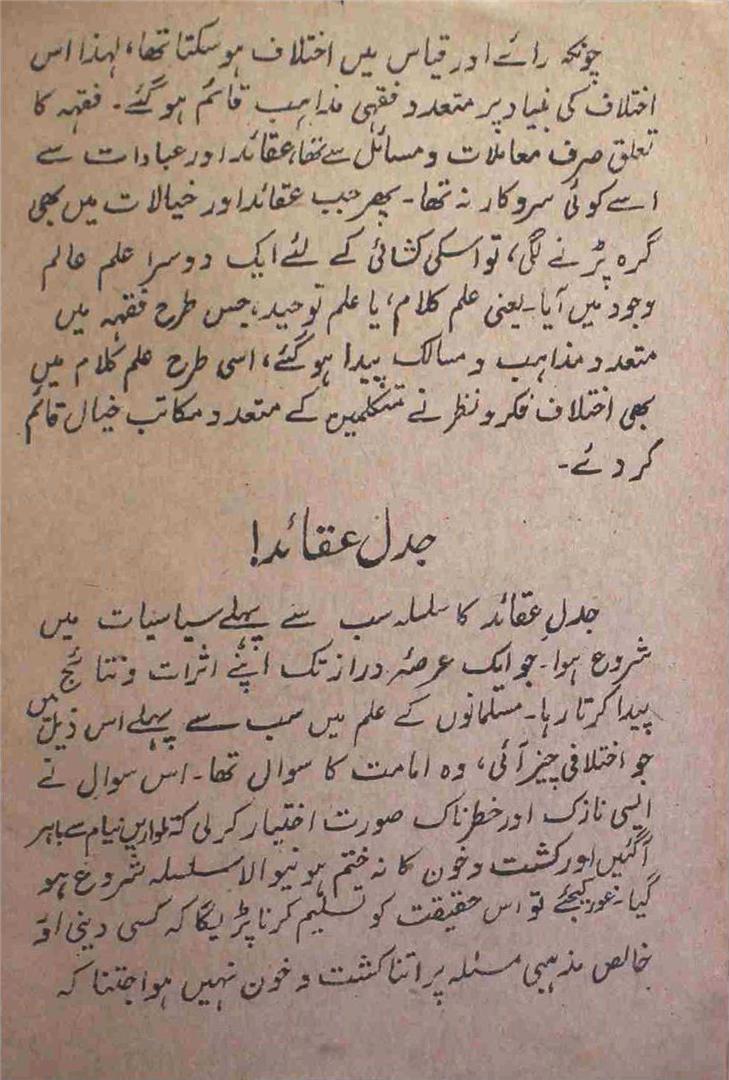 چونکہ رائے اور قیاس میں اختلاف ہو سکتا تھا، لہذا اس
اختلاف کی بنیاد پر متعدد فقہی مذاہب قائم ہو گئے۔ فقہہ کا
تعلق صرف معاملات و مسائل سے تھا، عقائد اور عبادات سے
اسے کوئی سروکار نہ تھا۔ پھر جب عقائد اور خیالات میں بھی
گرہ پڑنے لگی، تو اسکی کشائی کے لئے ایک دوسرا علم عالم
وجود میں آیا۔ یعنی علم کلام، یا علم توحید، جس طرح فقہہ میں
متعدد مذاہب و مسالک پیدا ہو گئے، اسی طرح علم کلام میں
بھی اختلاف فکر و نظر نے متکلمین کے متعدد مکاتب خیال قائم
کر دئے۔
جدل عقائد!
جدلِ عقائد کا سلسلہ سب سے پہلے سیاسیات میں
شروع ہوا۔ جو ایک عرصۂ دراز تک اپنے اثرات و نتائج
پیدا کرتا رہا۔ مسلمانوں کے علم میں سب سے پہلے اس ذیل میں
جو اختلافی چیز آئی، وہ امامت کا سوال تھا۔ اس سوال نے
ایسی نازک اور خطرناک صورت اختیار کر لی کہ تلواریں نیام سے باہر
آگئیں اور کشت و خون کا نہ ختم ہونیوالا سلسلہ شروع ہو
گیا۔ غور کیجئے تو اس حقیقت کو تسلیم کرنا پڑیگا کہ کسی دینی اور
خالص مذہبی مسئلہ پر اتنا کشت و خون نہیں ہوا جتنا کہ